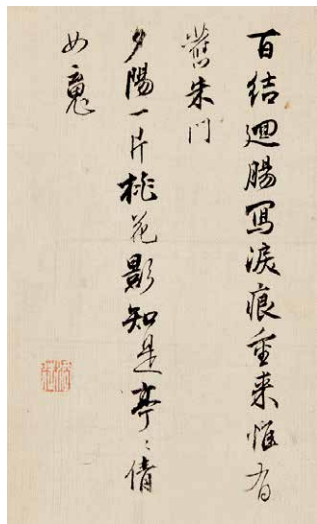 百结迴腸寫淚痕重来惟有
舊朱門
夕陽一片桃花影知是亭〻倩
女䰟